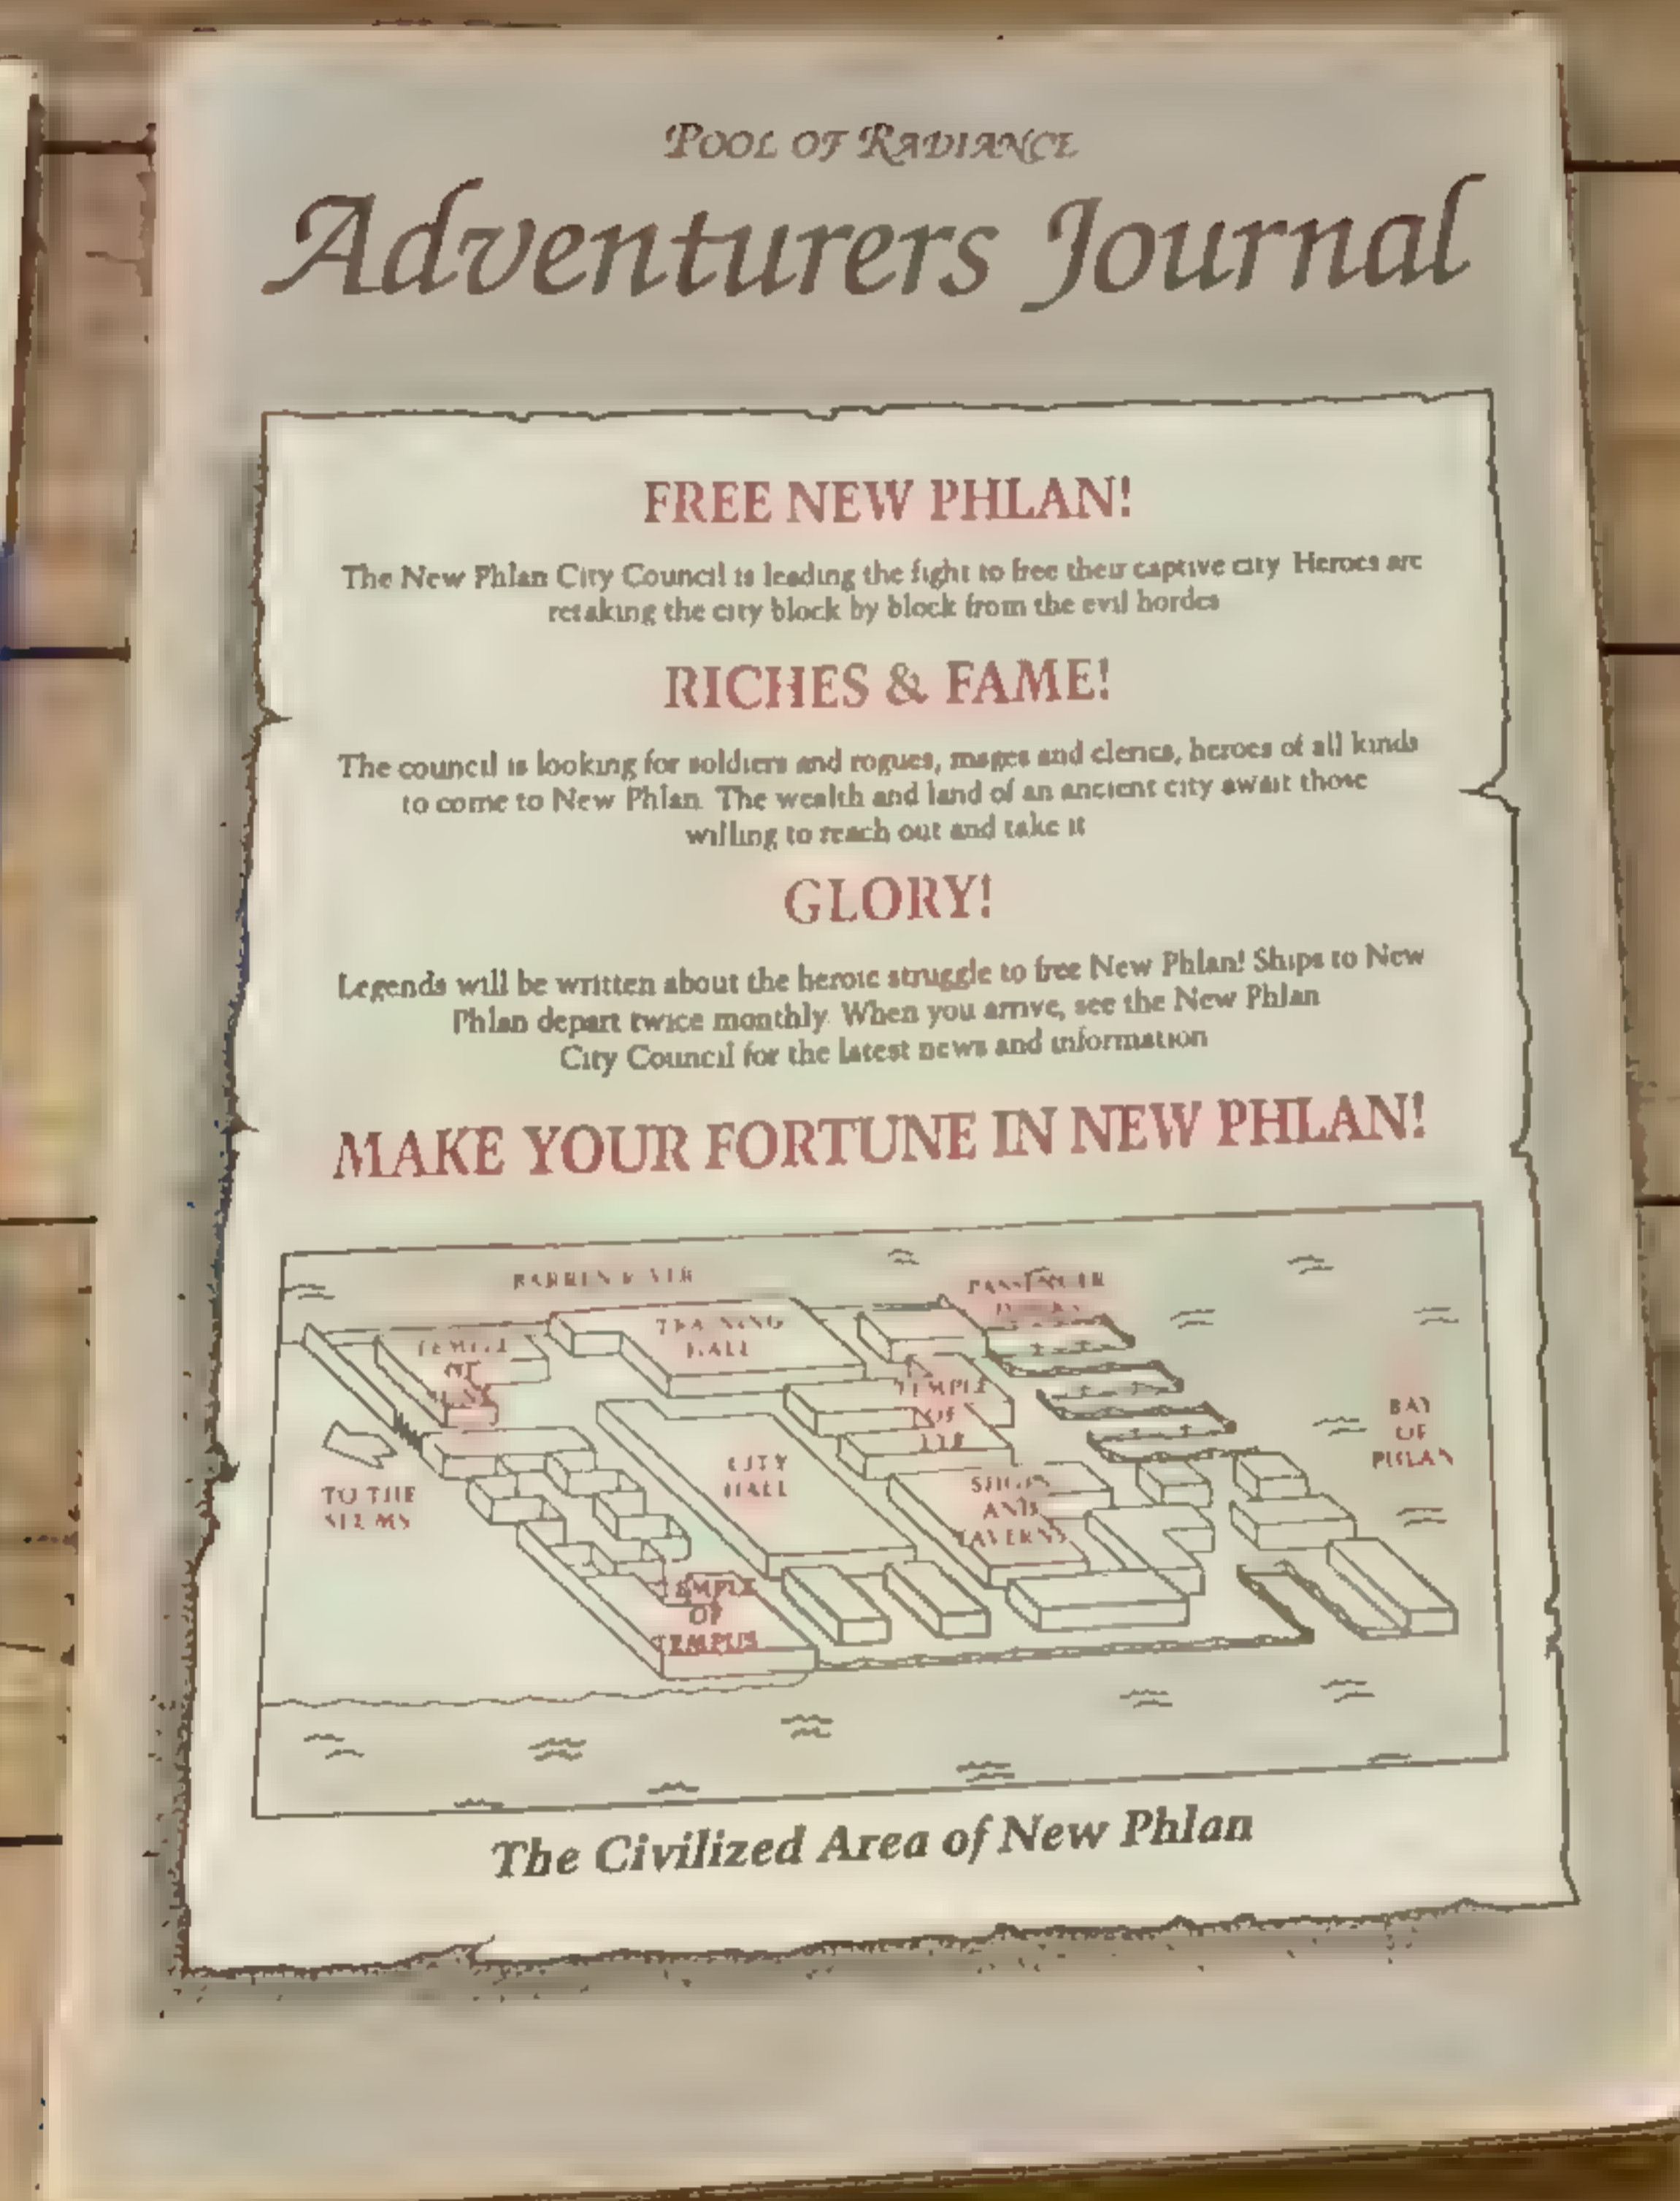 POOL OF RADIANCE
Adventurers Journal
FREE NEW PHLAN!
The New Phlan City Council is leading the fight to free their captive city Heroes are
retaking the city block by block from the evil hordes
RICHES & FAME!
The council is looking for soldiers and rogues, mages and clerics, heroes of all kinds
to come to New Phlan. The wealth and land of an ancient city await those
willing to reach out and take it
GLORY!
Legends will be written about the heroic struggle to free New Phlan! Ships to New
Phlan depart twice monthly. When you arrive, see the New Phlan
City Council for the latest news and information
MAKE YOUR FORTUNE IN NEW PHLAN!
BARREN RIVER
PASSENGER
DOCKS
TRAINING
HALL
TEMPLE
OF
TEMPLE
OF
TYR
BAY
OF
PHLAN
CITY
HALL
SHOPS
AND
TAVERNS
TO THE
SLUMS
TEMPLE
OF
TEMPUS
The Civilized Area of New Phlan